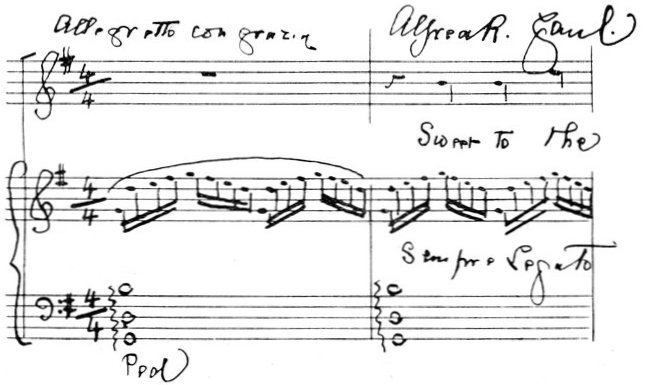 Allegretto con grazia
Alfred R. Gaul.
4
4
Sweet to the
4
4
Sempre Legato
4
4
Ped